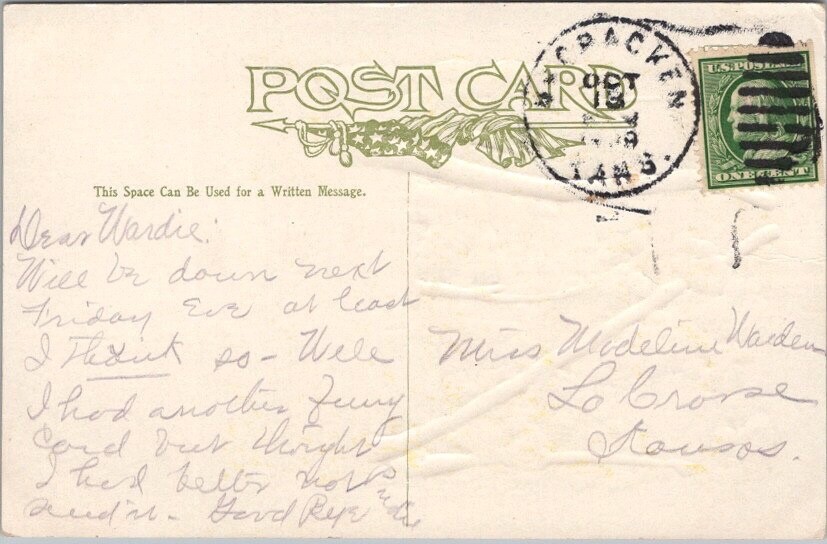 POST CARD
McCRACKEN
OCT
13
KANS.
U.S. POSTAGE
ONE CENT
This Space Can Be Used for a Written Message.
Dear Wardie:
Will be down next
Friday Eve at least
I think so - Well
I had another funny
card but thought
I had better not
send it - Good Bye
Miss Madeline Warden
La Crosse
Kansas.